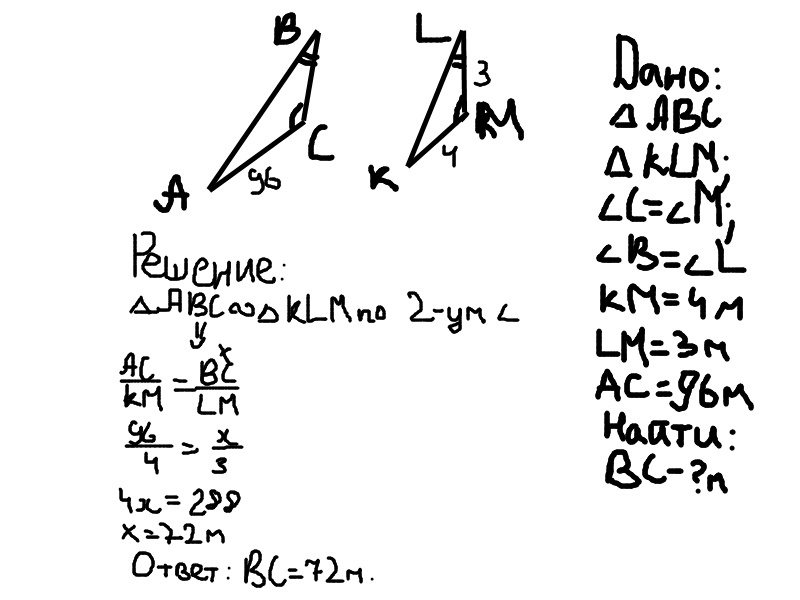 B
C
A
96
L
3
M
K
4
Дано:
△ ABC
△ KLM;
∠C=∠M;
∠B=∠L
KM=4м
LM=3м
AC=96м
Найти:
BC-?м
Решение:
△ABC∾△KLM по 2-ум ∠
⇓
AC/KM = BC/LM
x
96/4 = x/3
4x=288
x=72м
Ответ: BC=72м.